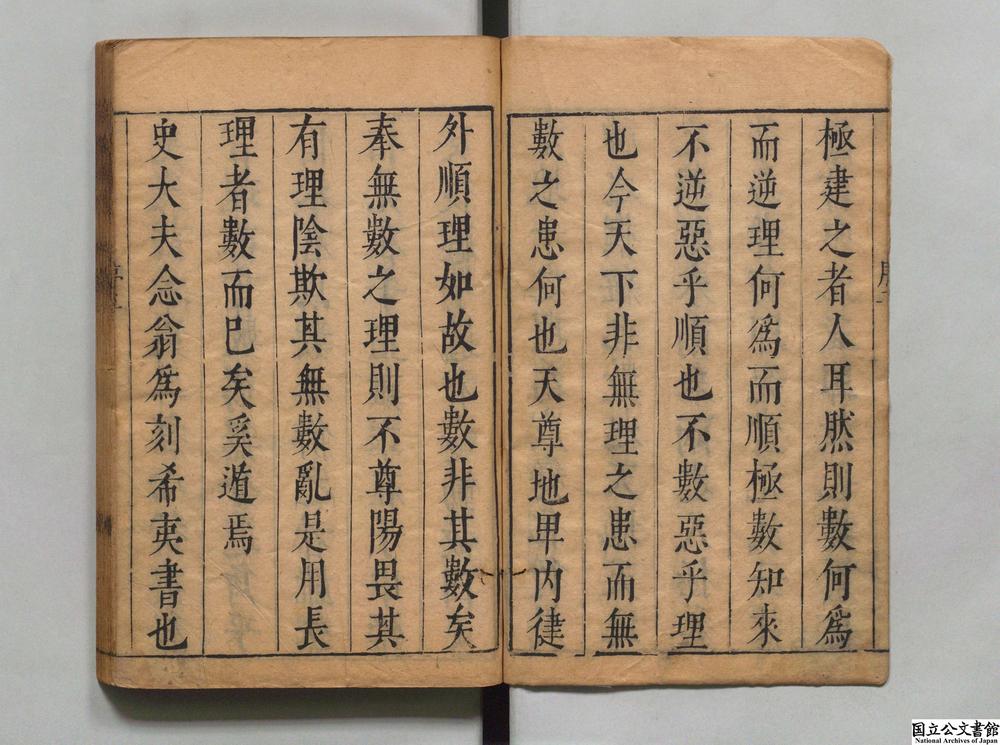 極建之者人耳然則數何爲
而逆理何爲而順極數知來
不逆惡乎順也不數惡乎理
也今天下非無理之患而無
數之患何也天尊地卑内律
外順理如故也數非其數矣
奉無數之理則不尊陽畏其
有理陰欺其無數亂是用長
理者數而已矣奚遁焉
史大夫念翁爲刻希夷書也
国立公文書館
National Archives of Japan